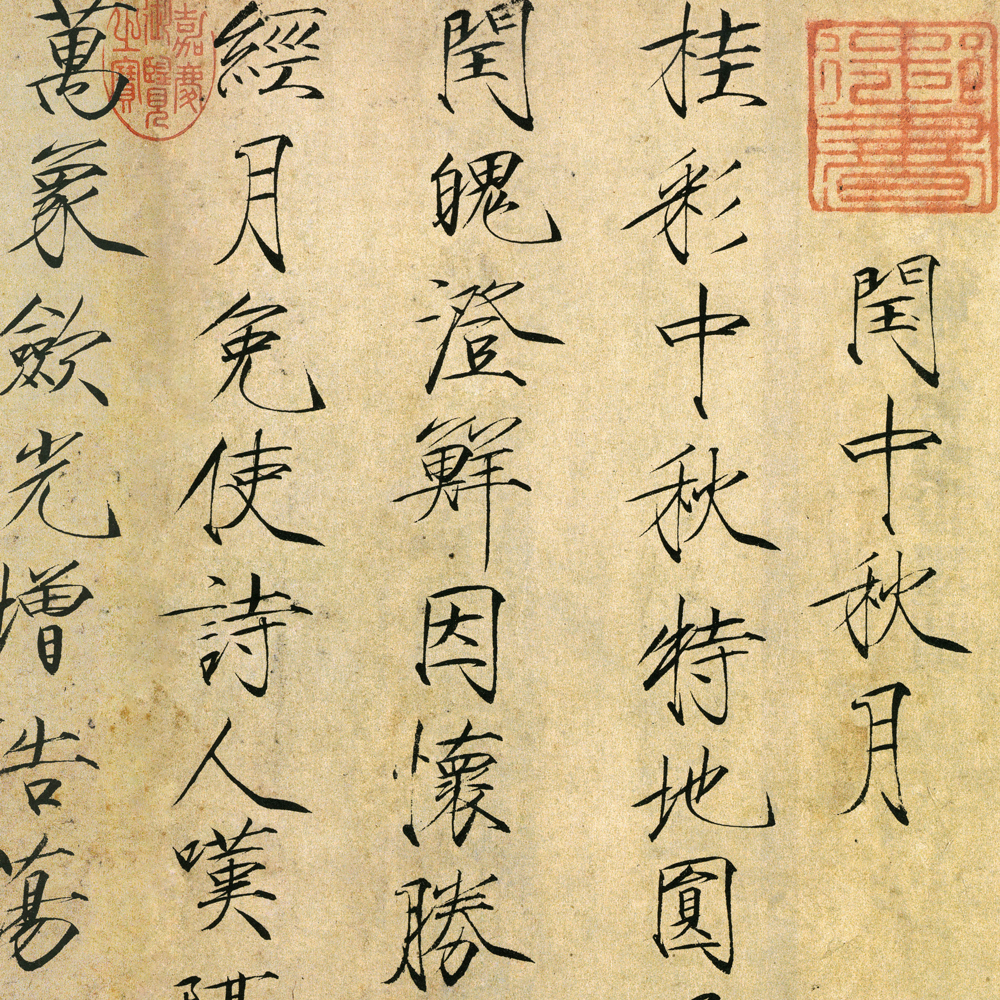 閏中秋月
桂彩中秋特地圓
閏魄澄鮮因懷勝
經月免使詩人嘆
萬象歛光增浩蕩
嘉慶
御覽
之寶